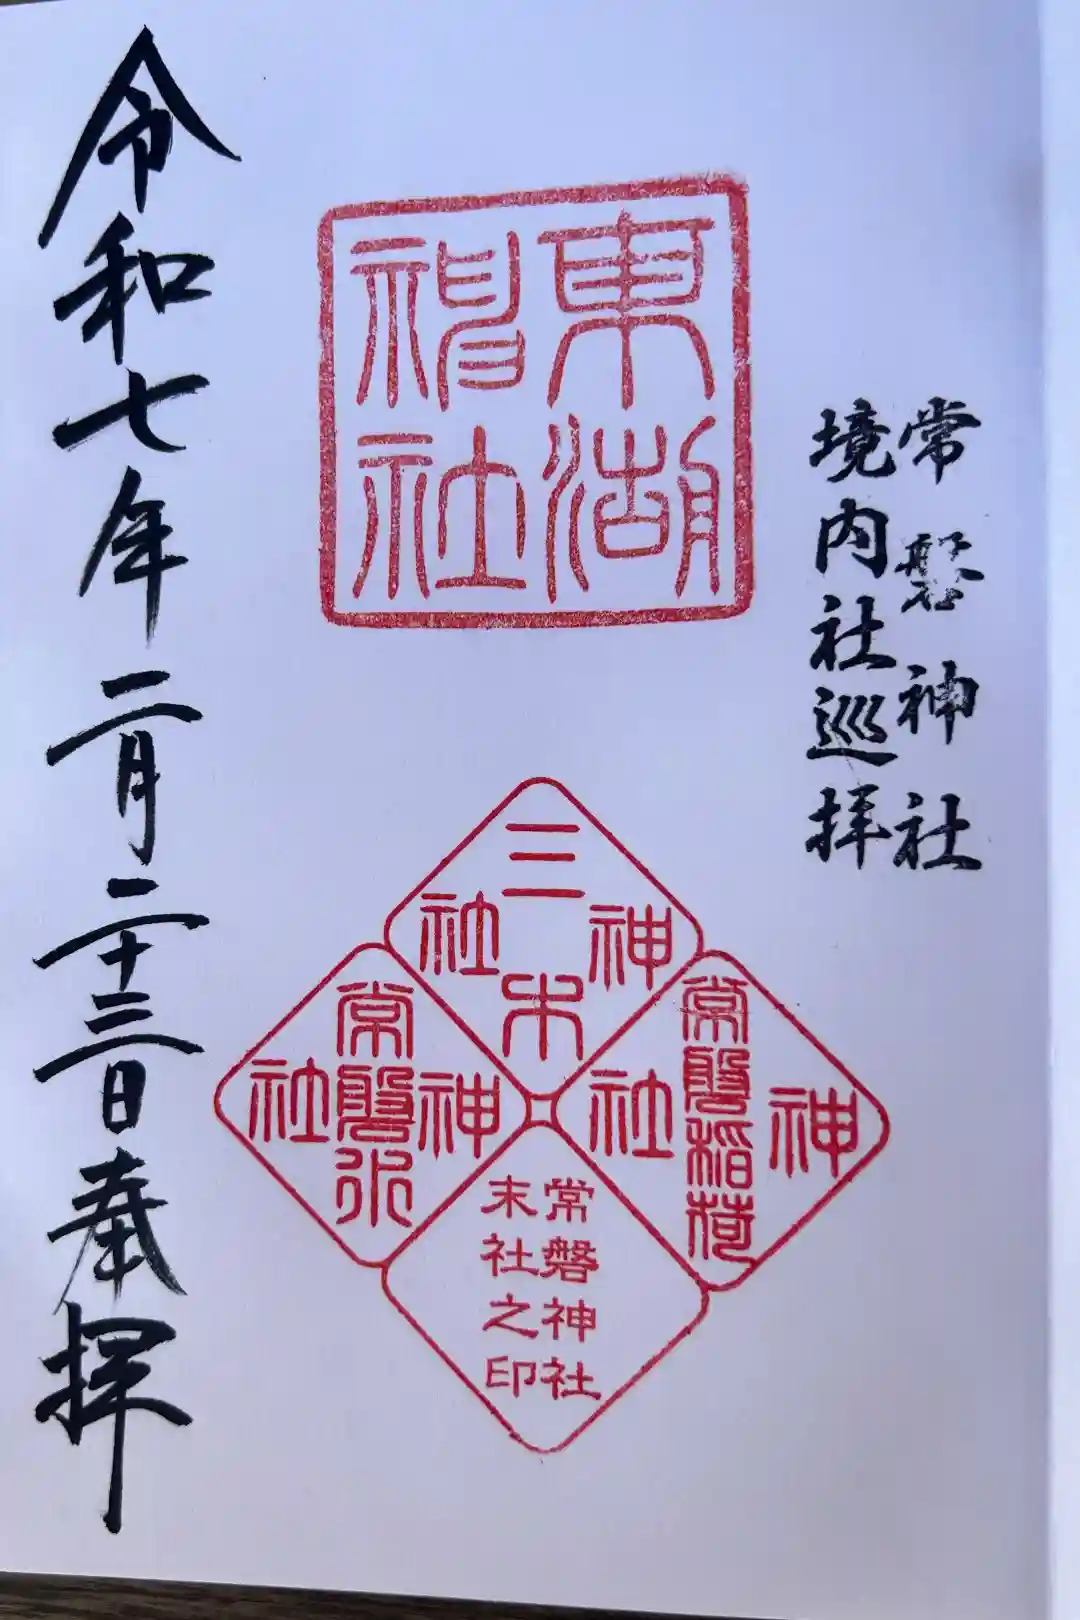 常磐神社
境内社巡拝
東湖
神社
三木
神社
常磐稲荷
神社
常磐水
神社
常磐神社
末社之印
令和七年二月二十三日奉拝